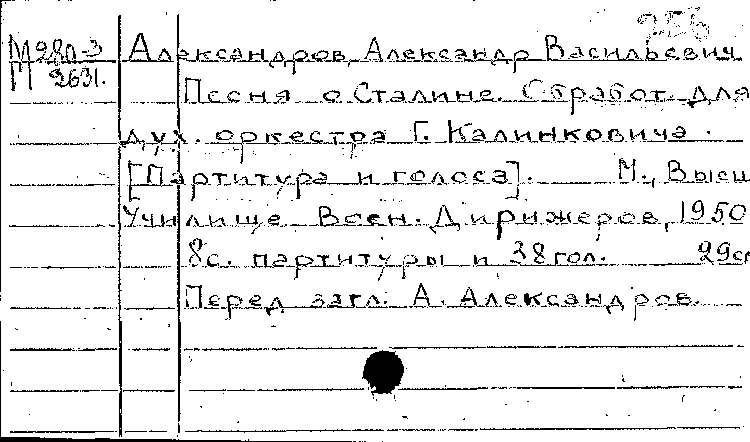 256
М980-3 Александров, Александр Васильевич
М 2631. Песня о Сталине. Обработ. для
дух. оркестра Г. Калинковича.
[Партитура и голоса]. М., Высш
Училище Воен. Дирижеров, 1950
8с. партитуры и 38 гол. 29см
Перед загл: А. Александров.